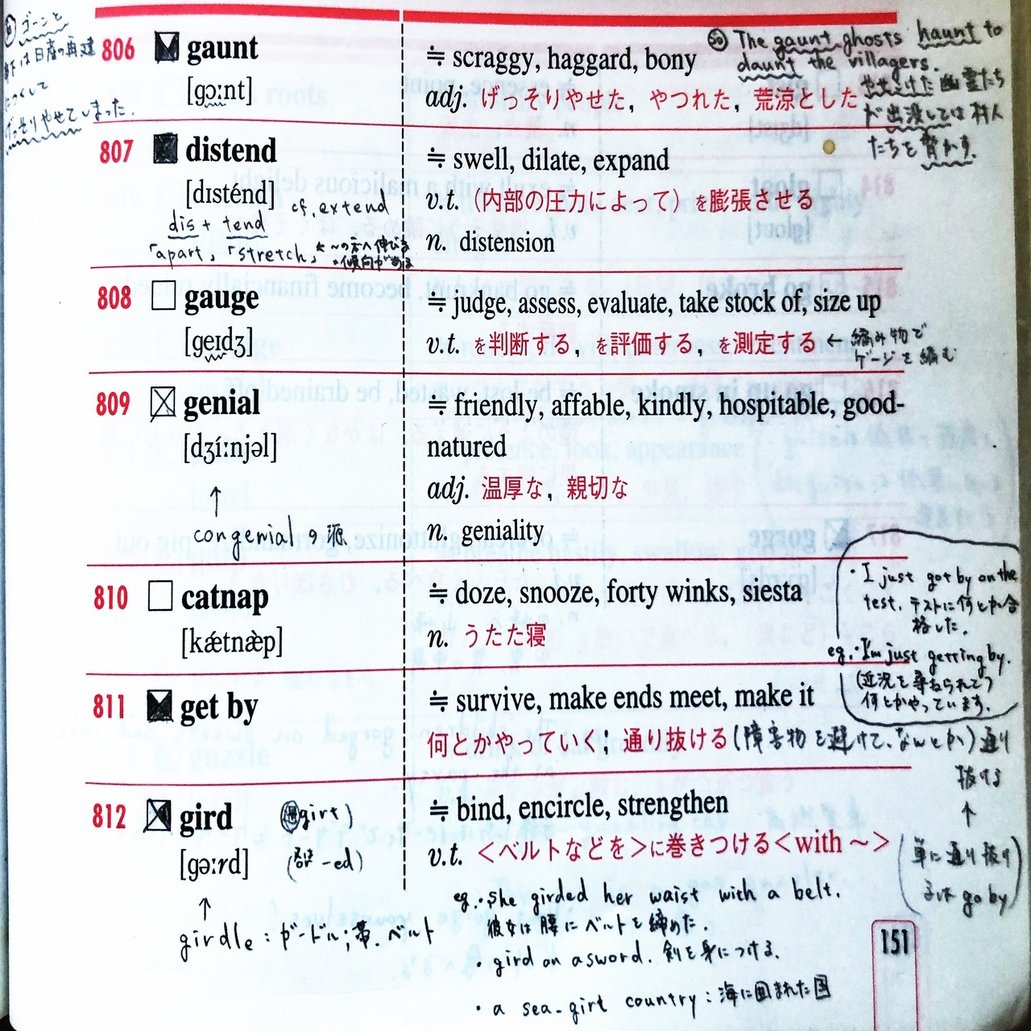 806 gaunt
[gɔːnt]
≒ scraggy, haggard, bony
adj. げっそりやせた，やつれた，荒涼とした
The gaunt ghosts haunt to
daunt the villagers.
幽霊たち
が出没しては村人
たちを脅かす.
ゴーンと
げっそりやせてしまった.
807 distend
[dɪsténd] cf. extend
dis + tend
「apart」「stretch」
≒ swell, dilate, expand
v.t. （内部の圧力によって）を膨張させる
n. distension
808 gauge
[geɪdʒ]
≒ judge, assess, evaluate, take stock of, size up
v.t. を判断する，を評価する，を測定する ← 編み物で
ゲージを編む
809 genial
[dʒíːnjəl]
↑
congenial の源
≒ friendly, affable, kindly, hospitable, good-
natured
adj. 温厚な，親切な
n. geniality
810 catnap
[kǽtnæ̀p]
≒ doze, snooze, forty winks, siesta
n. うたた寝
・I just got by on the
test. テストに何とか合
格した.
eg.・I'm just getting by.
(近況を尋ねられて)
何とかやっています.
811 get by
≒ survive, make ends meet, make it
何とかやっていく；通り抜ける (障害物を避けて、なんとか) 通り
抜ける
↑
(単に通り抜け
るは go by)
812 gird
[gəːrd]
girt)
-ed)
↑
girdle : ガードル;帯. ベルト
≒ bind, encircle, strengthen
v.t. ＜ベルトなどを＞に巻きつける＜with ～＞
eg.・She girded her waist with a belt.
彼女は腰にベルトを締めた.
・gird on a sword. 剣を身につける.
・a sea-girt country : 海に囲まれた国
151